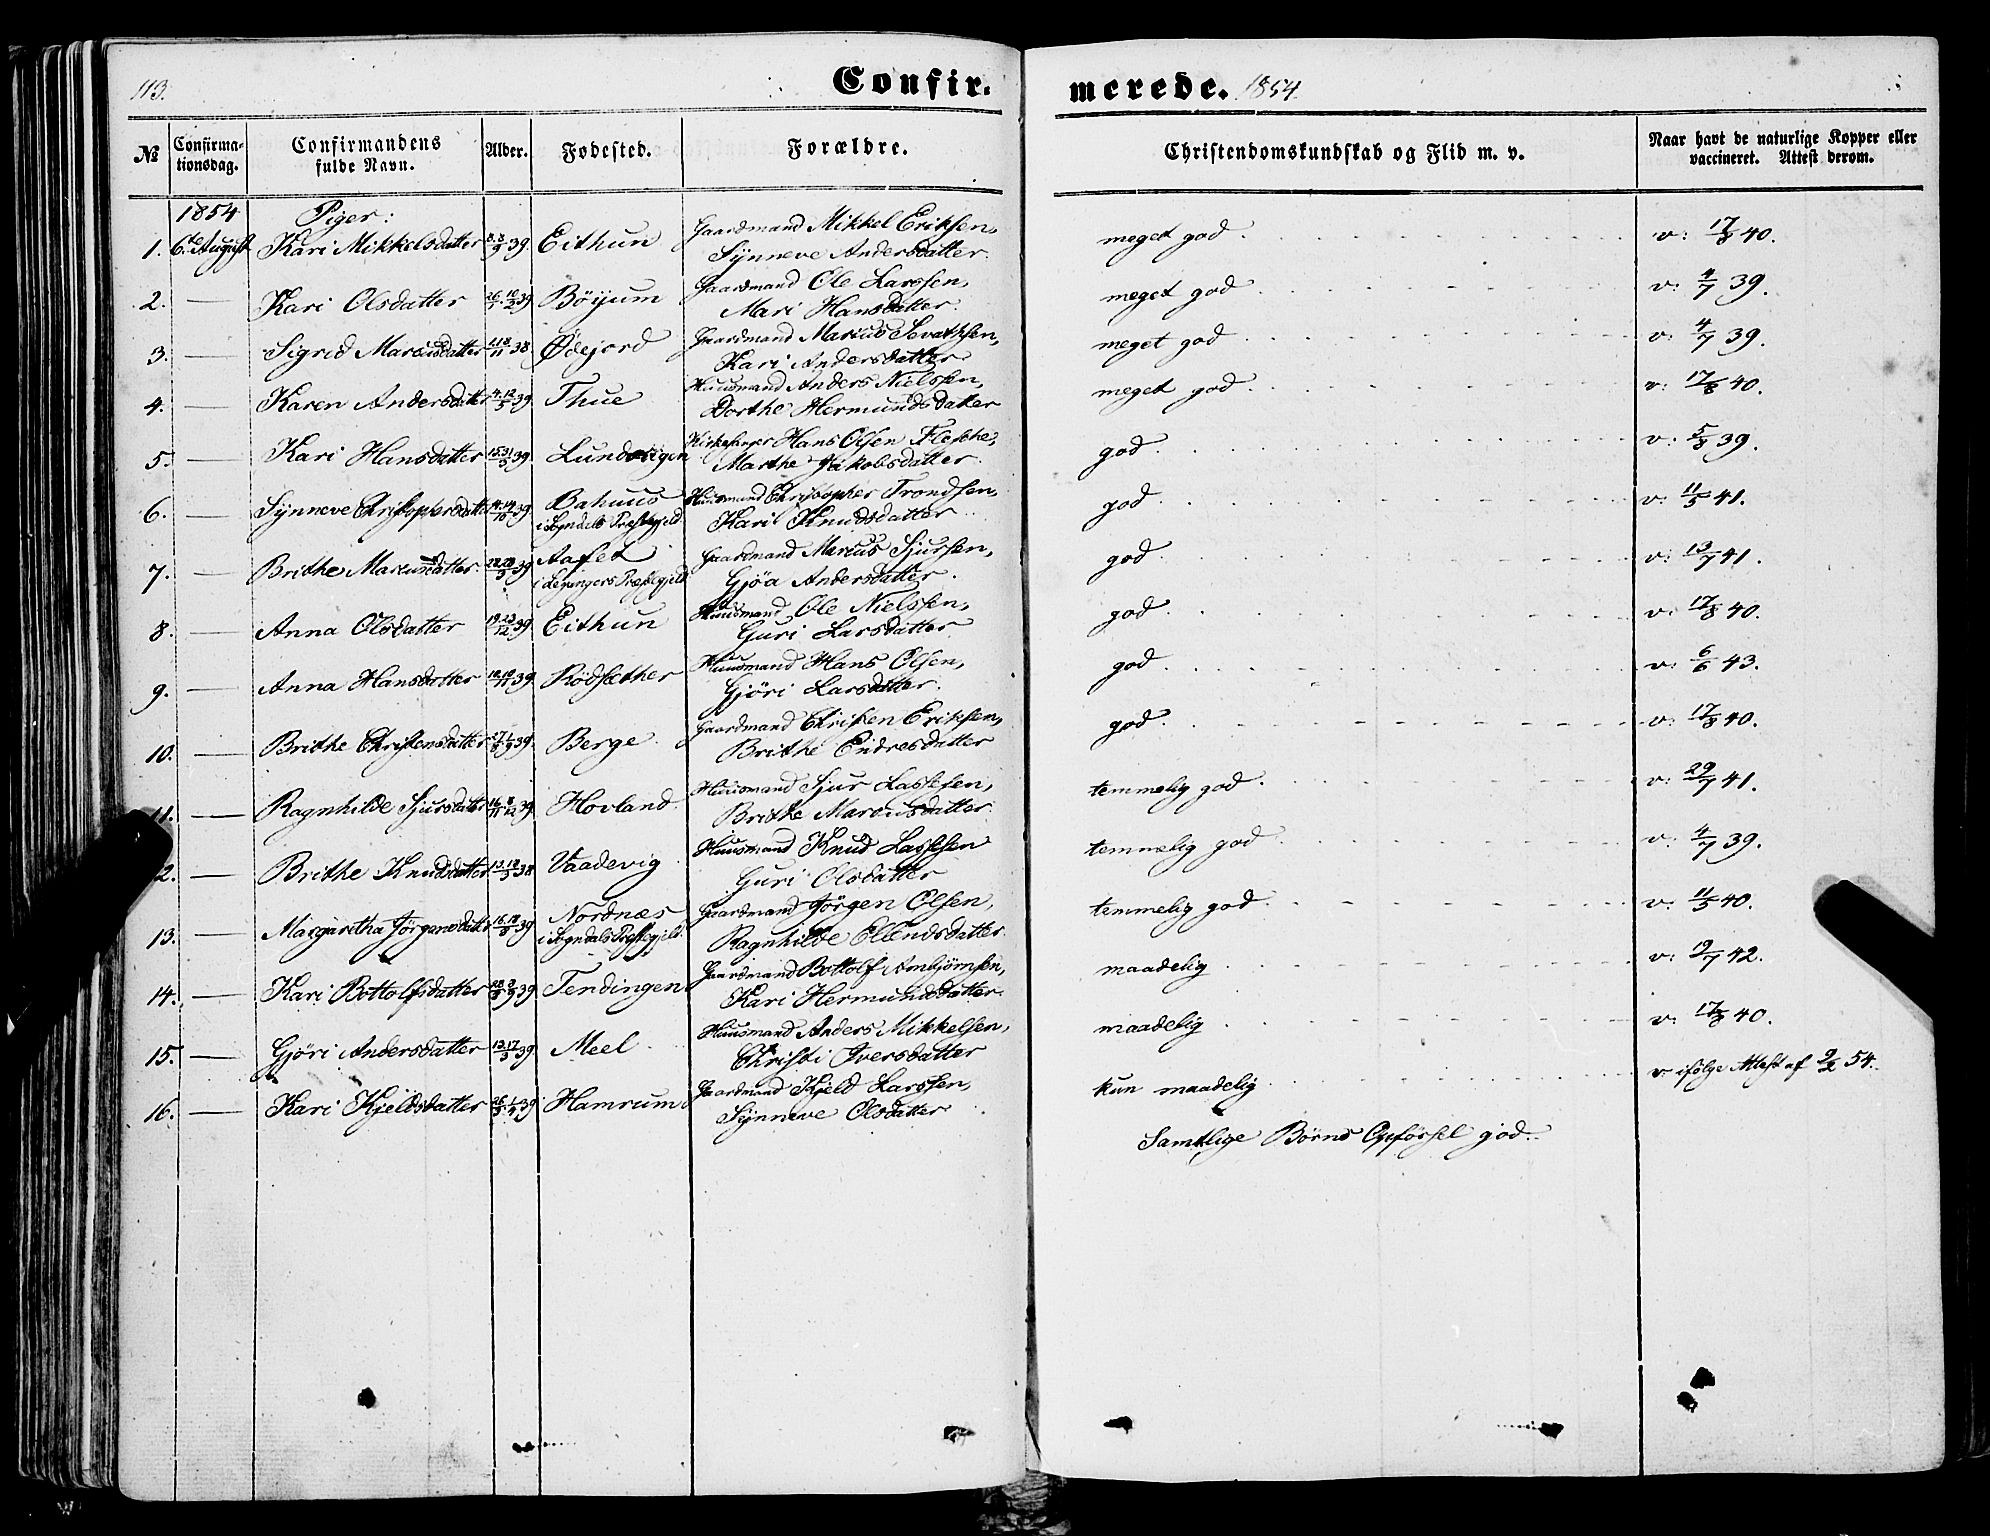 113.
Confir-
merede. 1854
№
Confirma-
tionsdag.
Confirmandens
fulde Navn.
Alder.
Fødested.
Forældre.
Christendomskundskab og Flid m. v.
Naar havt de naturlige Kopper eller
vaccineret. Attest derom.
1854 Piger:
1. 6te August Kari Mikkelsdatter 39 Eithun Gaardmand Mikkel Eriksen,
Synneve Andersdatter.
meget god v: 17/8 40.
2. — Kari Olsdatter 39 Böyum Gaardmand Ole Larssen,
Mari Hansdatter.
meget god v: 4/7 39.
3. — Sigrid Marcusdatter 38 Ødejord Gaardmand Marcus
Kari Andersdatter
meget god v: 4/7 39.
4. — Karen Andersdatter 39 Thue Huusmand Anders Nielssen,
Dorthe Hermundsdatter
meget god v: 17/8 40.
5. — Kari Hansdatter 39 Kirkesanger Hans Olsen Flesche,
Marthe Jakobsdatter.
god v: 5/8 39.
6. — Synneve Christophersdatter 39 Bahuus Huusmand Christopher Trondsen,
i Sogndals Præstegjeld Kari Knudsdatter
god v: 11/5 41.
7. — Brithe Marcusdatter 39 Aafet Gaardmand Marcus Sjursen,
i Leyangers Præstegjeld Gjöa Andersdatter.
god v: 13/7 41.
8. — Anna Olsdatter 39 Eithun Huusmand Ole Nielssen,
Guri Larsdatter
god v: 17/8 40.
9. — Anna Hansdatter 39 Rödsæther Huusmand Hans Olsen,
Gjöri Larsdatter.
god v: 6/6 43.
10. — Brithe Christensdatter 39 Berge Gaardmand Christen Eriksen,
Brithe Endresdatter
god v: 17/8 40.
11. — Ragnhilde Sjursdatter 39 Hovland Huusmand Sjur Lassesen,
Brithe Marcusdatter.
temmelig god v: 29/7 41.
2. — Brithe Knudsdatter 38 Vaadevig Huusmand Knud Lassesen
Guri Olsdatter
temmelig god v: 4/7 39.
13. — Margaretha Jörgensdatter 39 Nordnæs Gaardmand Jörgen Olsen,
i Sogndals Præstegjeld Ragnhilde Ellendsdatter
temmelig god v: 11/5 40.
14. — Kari Bottolfsdatter 39 Tendingen Gaardmand Bottolf Arnbjörnsen,
Kari Hermundsdatter
maadelig v: 19/7 42.
15. — Gjöri Andersdatter 39 Meel Huusmand Anders Mikkelsen,
Christi Iversdatter
maadelig v: 17/8 40.
16. — Kari Kjeldsdatter 39 Hamrum Gaardmand Kjeld Larssen,
Synneve Olsdatter
kun maadelig v: ifölge Attest af 9/2 54.
Samtlige Börns Opförsel god.